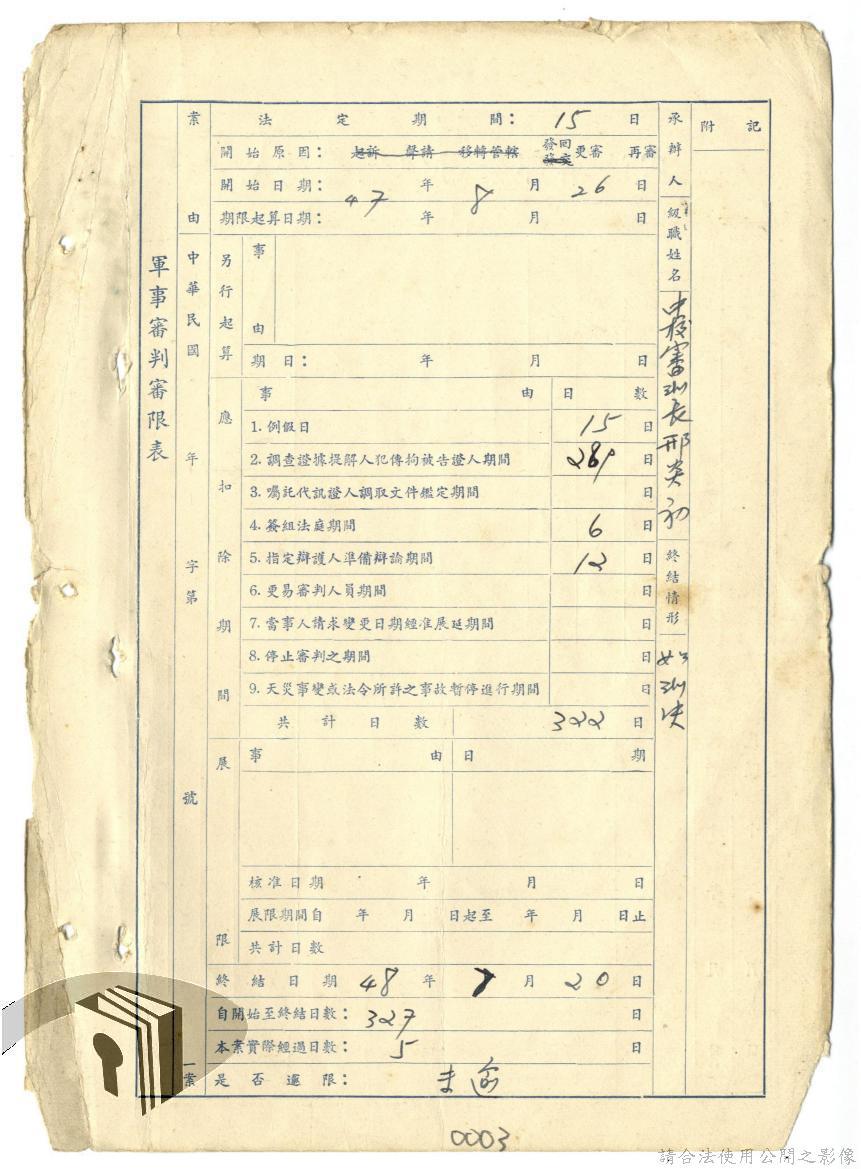 軍事審判審限表
案由
中華民國 年 字第 號
一案
法定期間：15日
開始原因：起訴 聲請 移轉管轄 發回 發交 更審 再審
開始日期：47年8月26日
期限起算日期： 年 月 日
另行起算
事由
期日： 年 月 日
應扣除期間
事由 日數
1.例假日 15日
2.調查證據提解人犯傳拘被告證人期間 289日
3.囑託代訊證人調取文件鑑定期間 日
4.簽組法庭期間 6日
5.指定辯護人準備辯論期間 12日
6.更易審判人員期間 日
7.當事人請求變更日期經准展延期間 日
8.停止審判之期間 日
9.天災事變或法令所許之事故暫停進行期間 日
共計日數 322日
展限
事由 日期
核准日期 年 月 日
展限期間自 年 月 日起至 年 月 日止
共計日數
終結日期 48年7月20日
自開始至終結日數：327日
本案實際經過日數：5日
是否逾限：未逾
承辦人級職姓名
中校審判長邢炎初
終結情形
如判決
附記
0003
請合法使用公開之影像